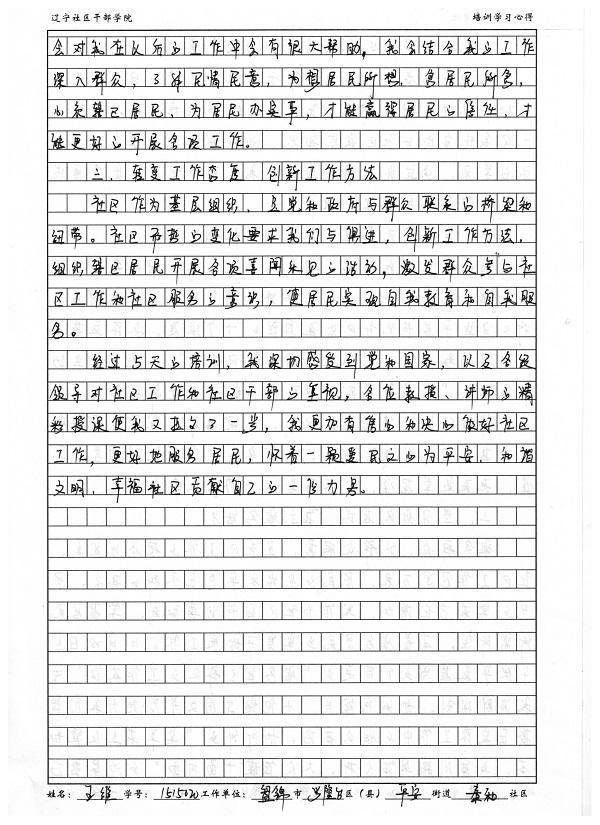 辽宁社区干部学院 培训学习心得
会对我在以后的工作中会有很大帮助，我会结合我的工作
深入群众，了解民情民意，为想居民所想，急居民所急，
心系辖区居民，为居民办实事，才能赢得居民的信任，才
能更好的开展各项工作。
三、转变工作态度 创新工作方法
社区作为基层组织，是党和政府与群众联系的桥梁和
纽带。社区形势的变化要求我们与俱进，创新工作方法，
组织辖区居民开展各项喜闻乐见的活动，激发群众参与社
区工作和社区服务的意识，使居民实现自我教育和自我服
务。
经过5天的培训，我深切感受到党和国家，以及各级
领导对社区工作和社区干部的重视，各位教授、讲师的精
彩授课使我又提高了一步，我更加有信心和决心做好社区
工作，更好地服务居民，怀着一颗爱民之心为平安、和谐
文明、幸福社区贡献自己的一份力量。
姓名：王维 学号：1515020 工作单位：盘锦市 兴隆台区（县） 平安 街道 社区